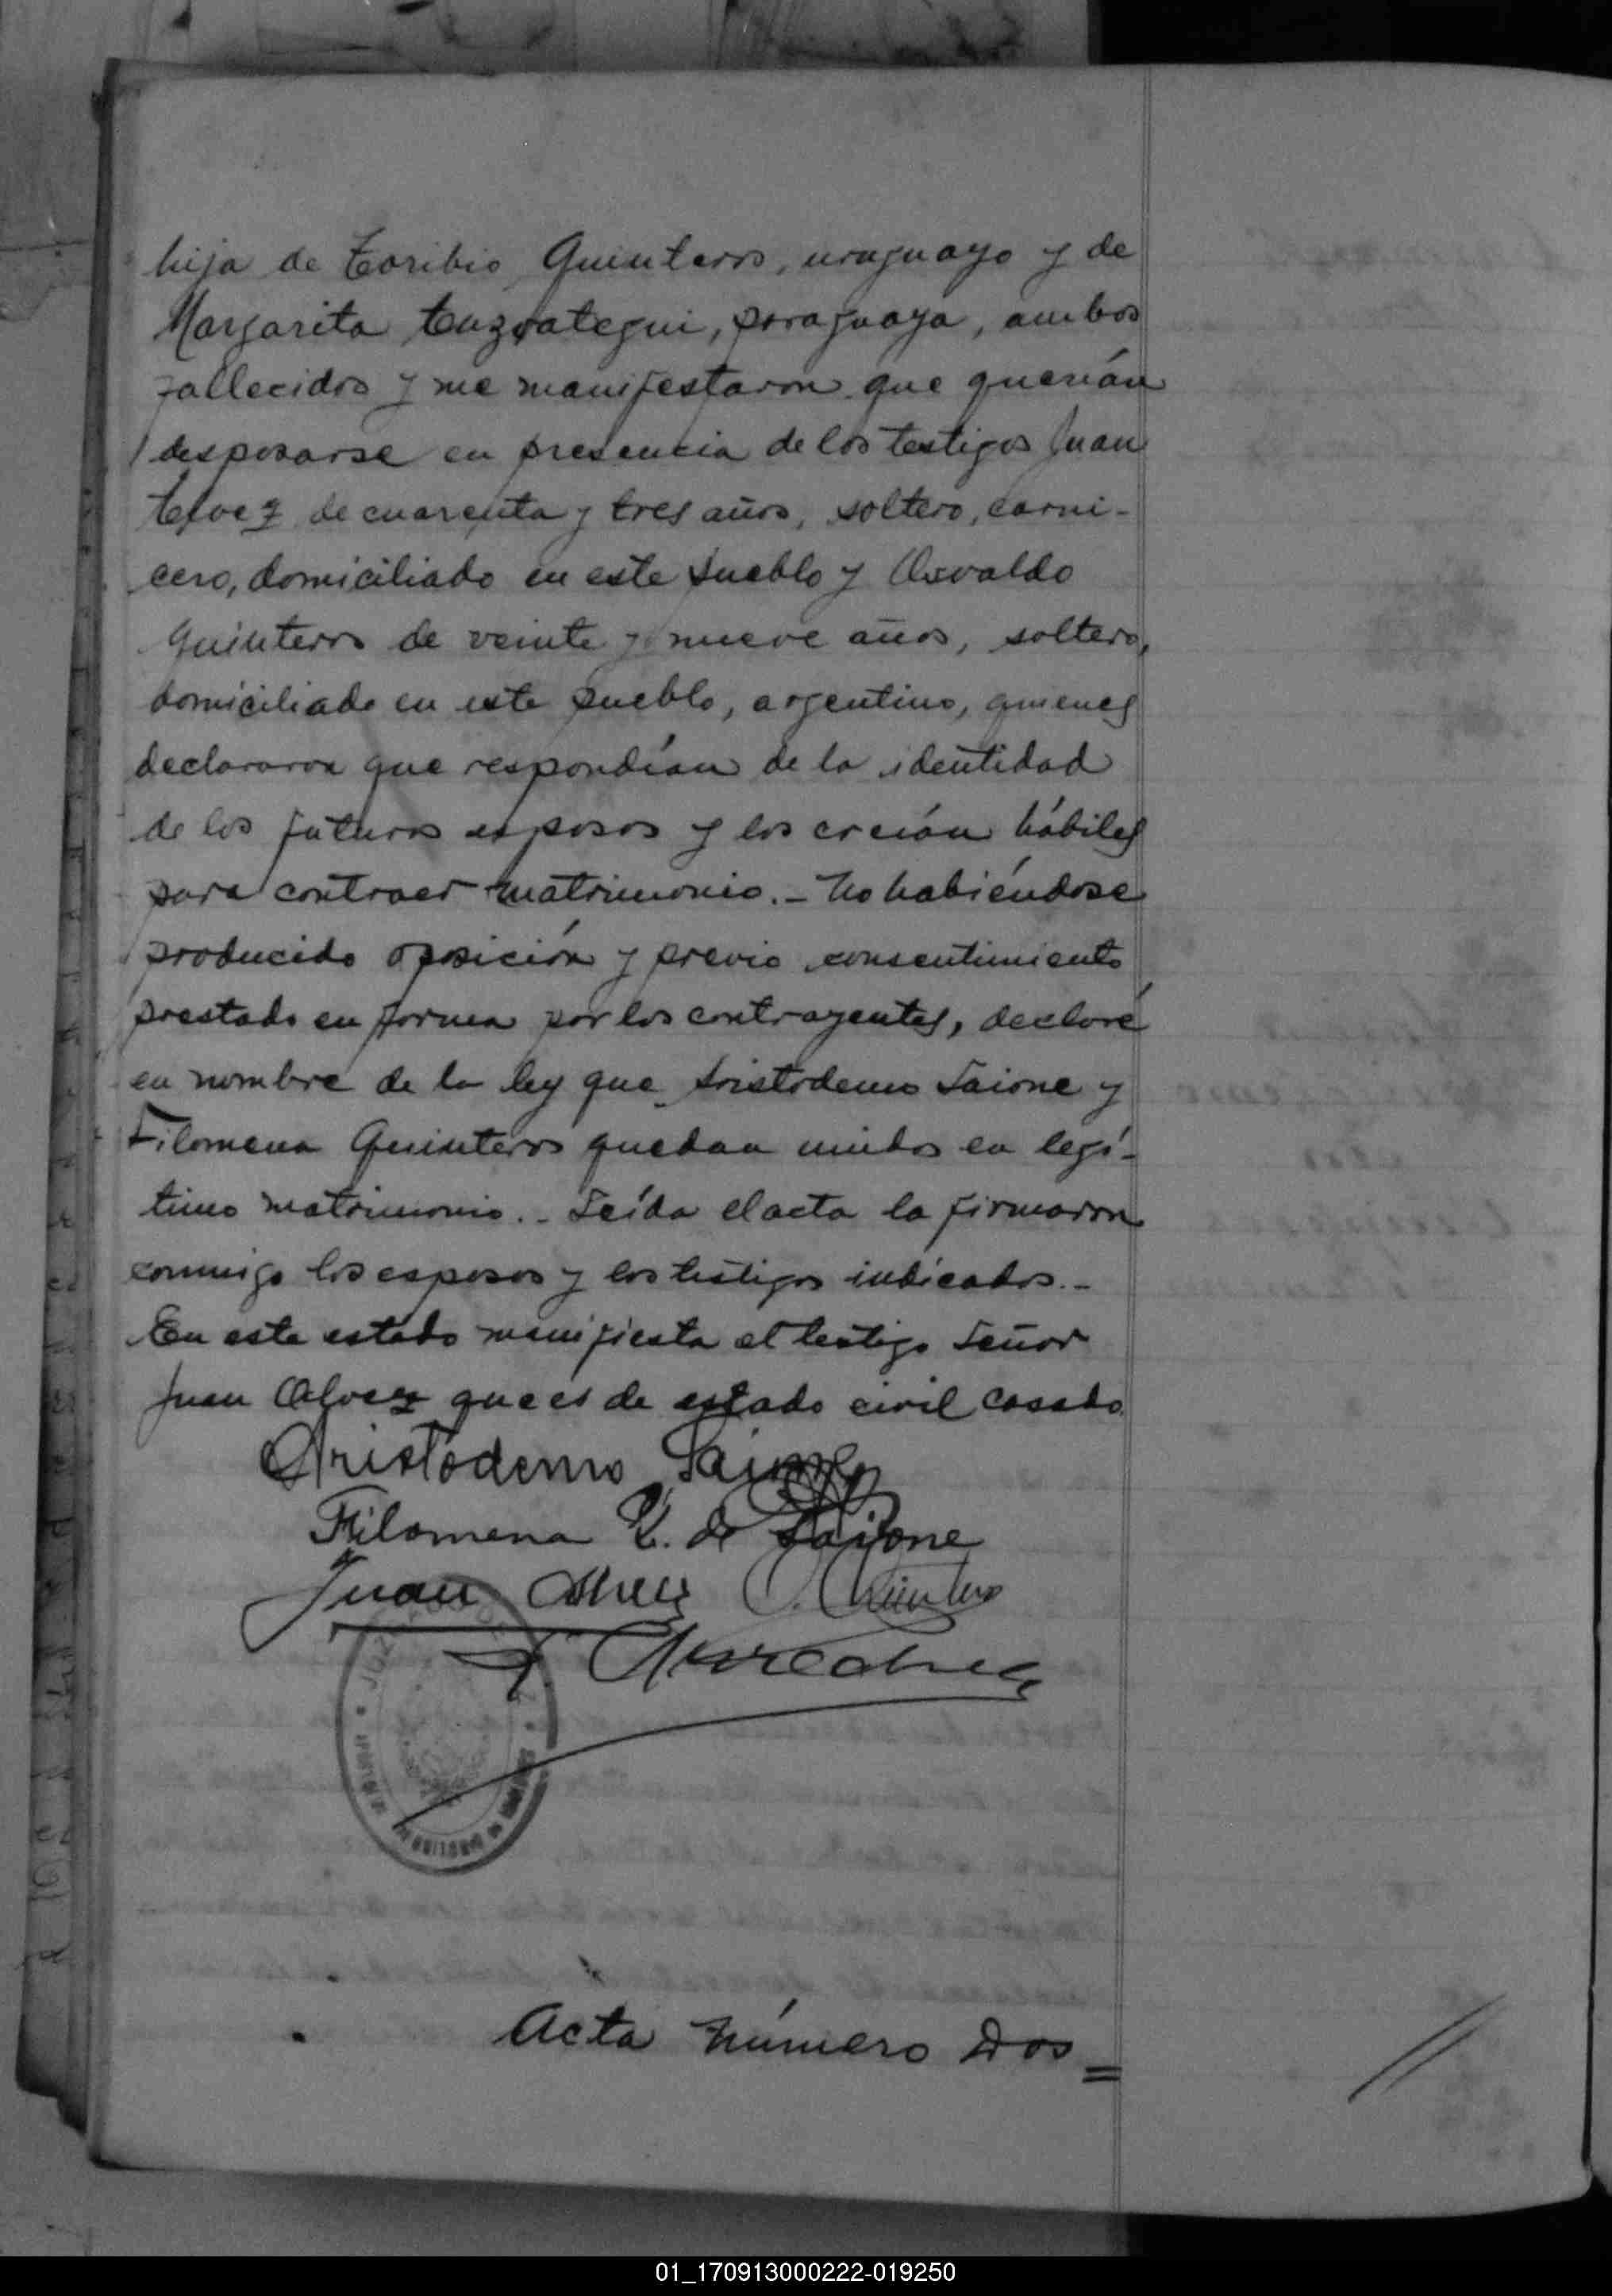 hija de Toribio Quinteros, uruguayo y de
Margarita, paraguaya, ambos
fallecidos y me manifestaron que querían
desposarse en presencia de los testigos Juan
Alvez de cuarenta y tres años, soltero, carni-
cero, domiciliado en este pueblo y Osvaldo
Quinteros de veinte y nueve años, soltero,
domiciliado en este pueblo, argentino, quienes
declararon que respondían de la identidad
de los futuros esposos y los creían hábiles
para contraer matrimonio.- No habiéndose
producido oposición y previo consentimiento
prestado en forma por los contrayentes, declaré
en nombre de la ley que Aristodemo Saione y
Filomena Quinteros quedan unidos en legí-
timo matrimonio.- Leída el acta la firmaron
conmigo los esposos y los testigos indicados.-
En este estado manifiesta el testigo Señor
Juan Alvez que es de estado civil casado.
Aristodemo Saione
Filomena Q. de Saione
Juan Alvez O. Quinteros
JUZGADO DE PAZ
Acta Número Dos =
01_170913000222-019250